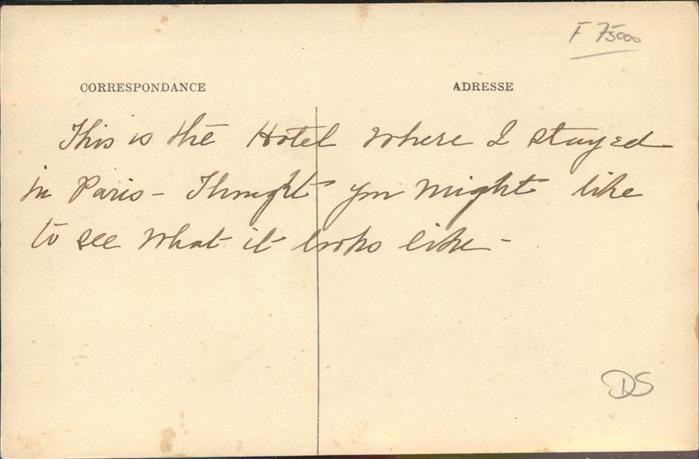 F 75000
CORRESPONDANCE ADRESSE
This is the Hotel where I stayed
in Paris – Thought you might like
to see what it looks like –
DS